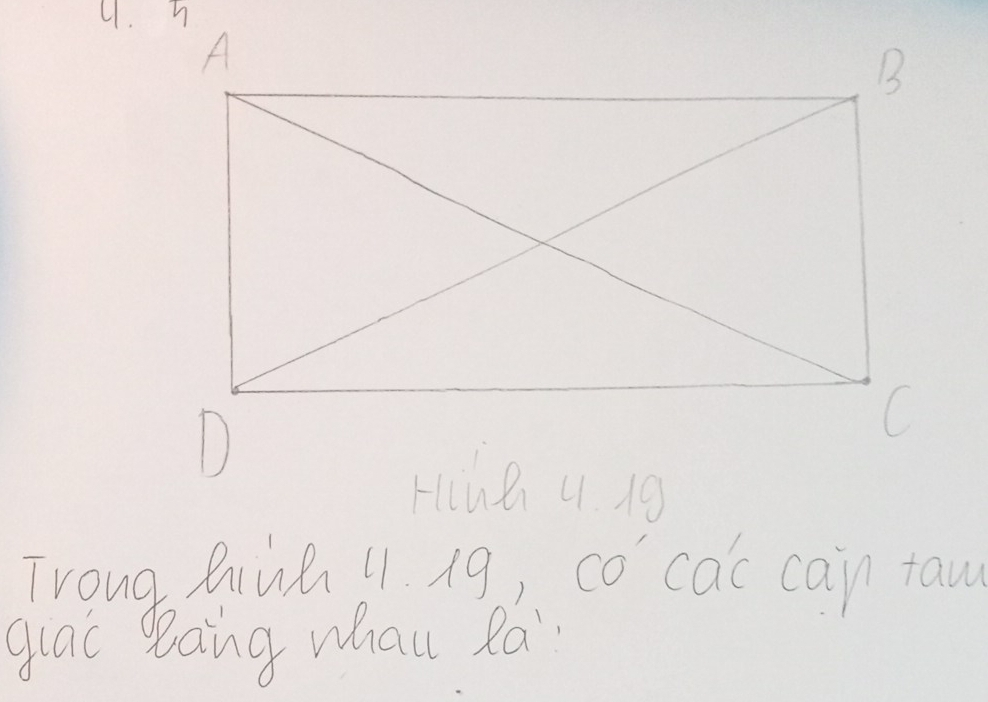 4. 5
A
B
D
C
Hình 4.19
Trong hình 4.19, có các cặp tam
giác bằng nhau là: